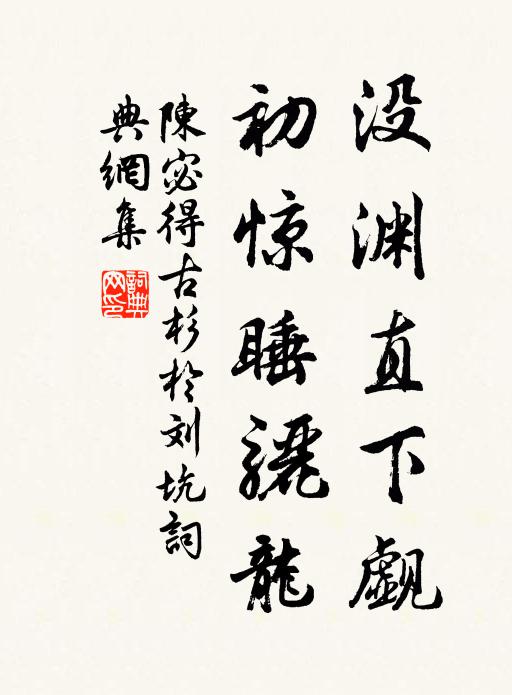 没渊直下觑
初惊睡骊龙
陳宓得古杉於刘坑詞
典網集
詞典網印